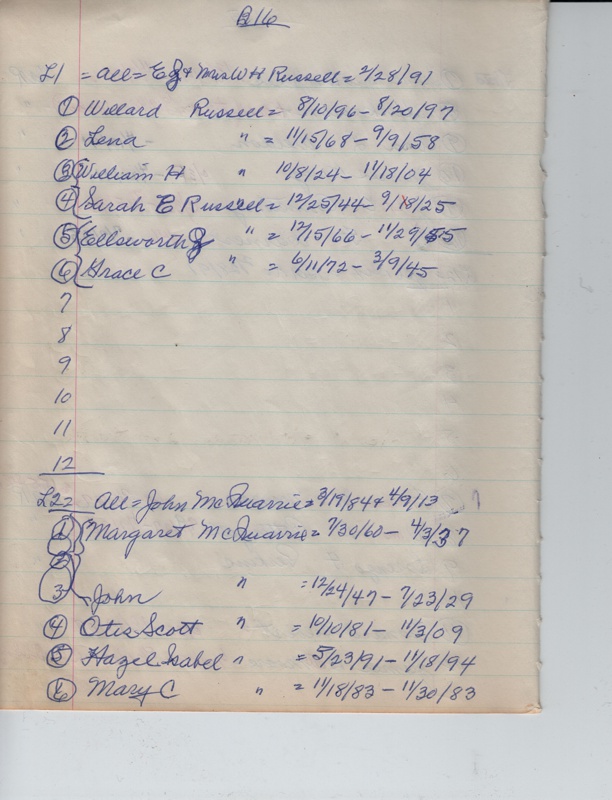 B16
L1 = all = E J & Mrs W H Russell = 2/28/91
1 Willard Russell = 8/10/96 - 8/20/97
2 Lena " = 11/15/68 - 9/9/58
3 William H " 10/8/24 - 11/18/04
4 Sarah E Russell = 12/25/44 - 9/18/25
5 Ellsworth J " = 12/15/66 - 11/29/55
6 Grace C " = 6/11/72 - 3/9/45
7
8
9
10
11
12
L2 = all = John McQuarrie = 3/19/84 & 4/9/13
1 Margaret McQuarrie = 7/30/60 - 4/3/37
2
3 John " = 12/24/47 - 7/23/29
4 Otis Scott " = 10/10/81 - 11/3/09
5 Hazel Isabel " = 5/23/91 - 11/18/94
6 Mary C " = 11/18/83 - 11/30/83